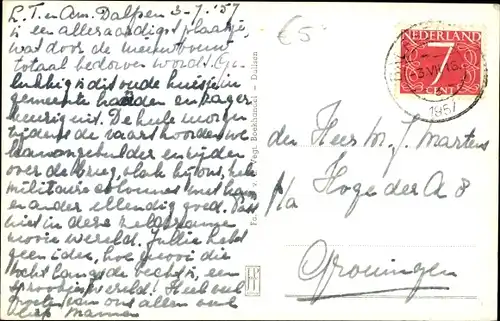 L. T. en Am. Dalfsen 3-7-'57
is een alleraardigst plaatje,
wat door de nieuwbouw
totaal bedorven wordt. Ge-
lukkig is dit oude huisje in
gemeente handen en zager
keurig uit. De hele morgen
tijdens de vaart hoorden we
kanongebulder en rijden
over de brug, vlak bij ons, hele
militaire colonnes met
en ander ellendig goed. Past
niet in deze zeldzame
mooie wereld. Jullie hebt
geen idee, hoe mooi die
tocht langs de Vecht is, een
sprookjeswereld! Heel veel
groeten van ons allen ook
Mannen
€5
NEDERLAND
7
CENT
1957
den Heer M. J. Martens
p/a Hoge der A 8
Groningen
Boekhandel - Dalfsen